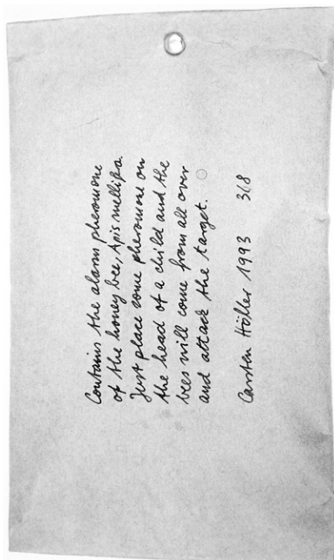 Contains the alarm pheromone
of the honey bee, Apis mellifra.
Just place some pheromone on
the head of a child and the
bees will come from all over
and attack the target.
Carsten Höller 1993 3/8